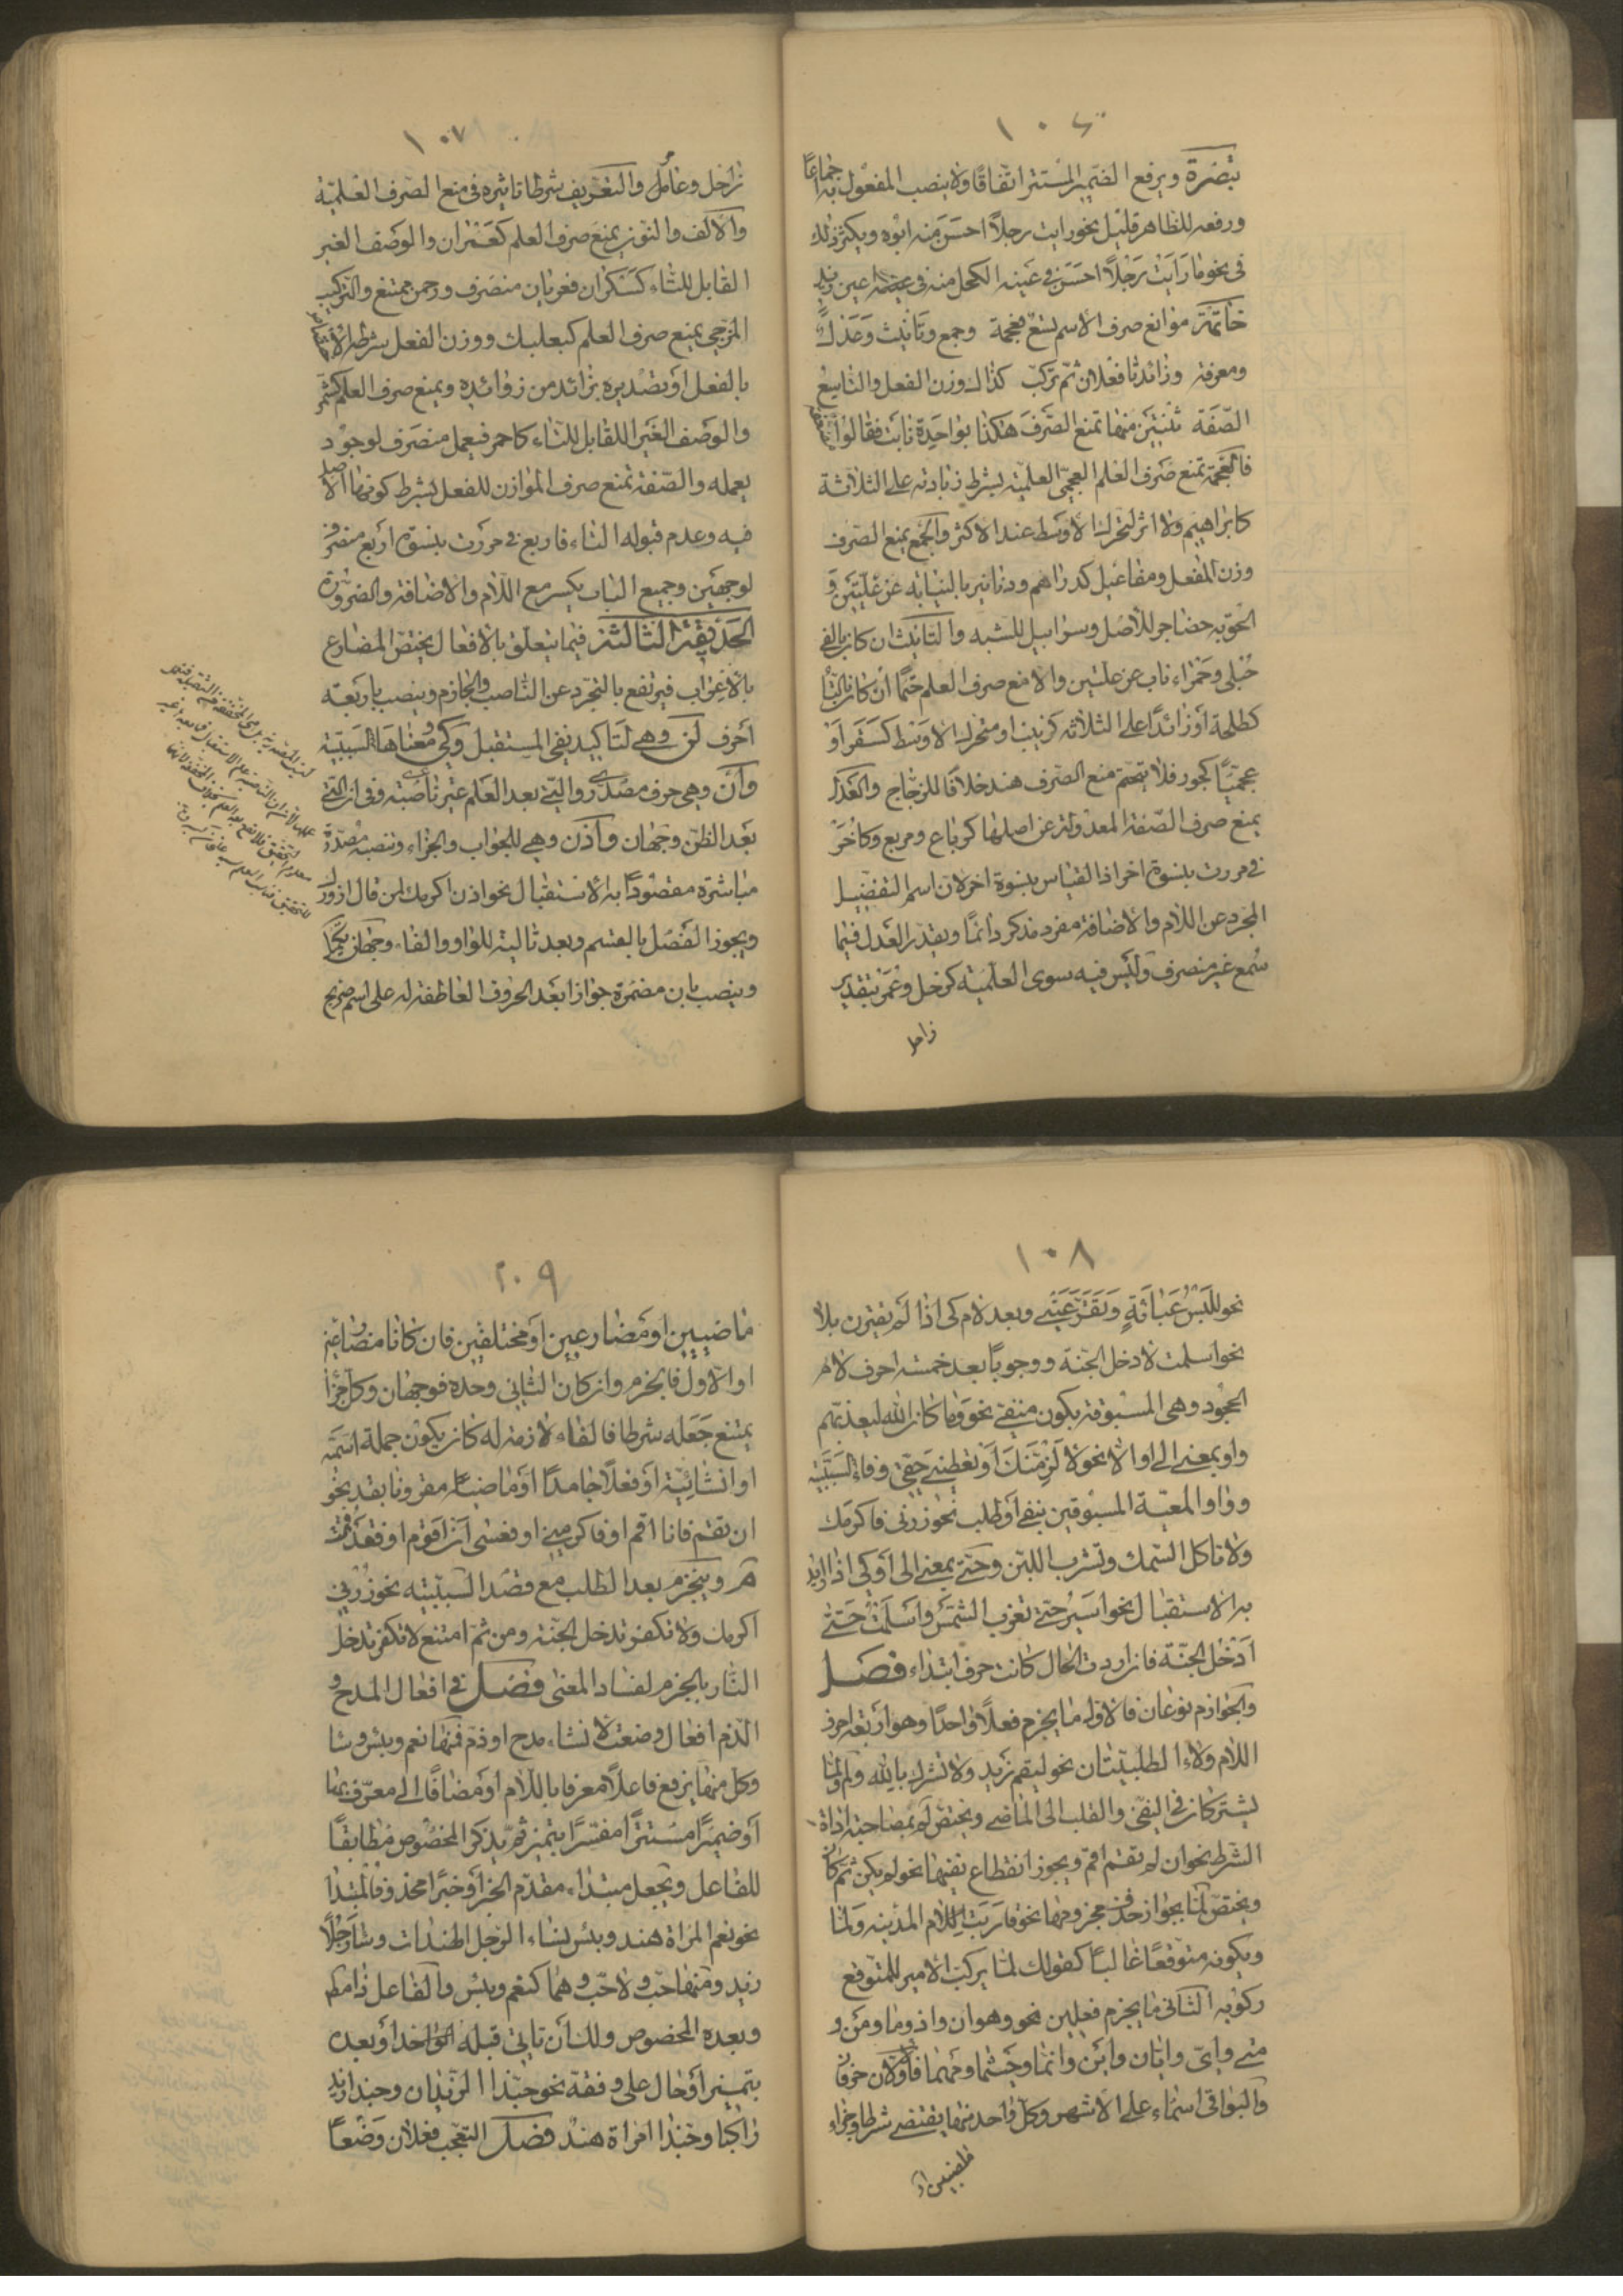 ١٠٦
تبصرة ويرفع الضمير المستتر اتفاقًا ولا ينصب المفعول به اجماعًا
ورفعه للظاهر قليل نحو رايت رجلاً احسن منه ابوه ويكثر ذلك
فى نحو ما رايت رجلاً احسن فى عينه الكحل منه فى عين زيد
خاتمة موانع صرف الاسم تسع فعجمة وجمع وتانيث وعدل
ومعرفة وزائدتا فعلان ثم تركب كذاك وزن الفعل والتاسع
الصفة ثنتين منها تمنع الصرف هكذا بواحدة نابت فقالوا
فالعجمة تمنع صرف العلم العجمى العلمية بشرط زيادته على الثلاثة
كابراهيم ولا اثر لتحرك الاوسط عند الاكثر والجمع يمنع الصرف
وزن المفعل ومفاعيل كدراهم ودنانير بالنيابة عن علتين و
الحق به حضاجر للاصل وسراويل للشبه والتانيث ان كان بالفى
حبلى وحمراء ناب عن علتين والا منع صرف العلم حتمًا ان كان بالتا
كطلحة او زائدًا على الثلاثة كزينب او متحرك الاوسط كسقر او
عجميًا كجور فلا يتحتم منع الصرف هند خلافًا للزجاج والعدل
يمنع صرف الصفة المعدولة عن اصلها كرباع ومربع وكاُخر
فى مررت بنسوة اخر اذ القياس بنسوة اخر لان اسم التفضيل
المجرد عن اللام والاضافة مفرد مذكر دائمًا ويقدر العدل فيما
سمع غير منصرف وليس فيه سوى العلمية كزحل وعمر بتقدير
زاحل
١٠٧
زاحل وعامر والتعريف شرط تاثيره فى منع الصرف العلمية
والالف والنون يمنع صرف العلم كعمران والوصف الغير
القابل للتاء كسكران فعريان منصرف ورحمن ممتنع والتركيب
المزجى يمنع صرف العلم كبعلبك ووزن الفعل بشرط الاختصاص
بالفعل او تصديره بزائد من زوائده ويمنع صرف العلم كشمر
والوصف الغير القابل للتاء كاحمر فيعمل منصرف لوجود
يعملة والصفة تمنع صرف الموازن للفعل بشرط كونها الاصل
فيه وعدم قبوله التاء فاربع فى مررت بنسوة اربع منصرف
لوجهين وجميع الباب يكسر مع اللام والاضافة والضرورة
الحديقة الثالثة فيما يتعلق بالافعال يختص المضارع
بالاعراب فيرتفع بالتجرد عن الناصب والجازم وينصب باربعة
احرف لن وهى لتاكيد نفى المستقبل وكى ومعناها السببية
وان وهى حرف مصدرى والتى بعد العلم غير ناصبة وفى ان التى
بعد الظن وجهان واذن وهى للجواب والجزاء وتنصبه مصدرة
مباشرة مقصودًا به الاستقبال نحو اذن اكرمك لمن قال ازورك
ويجوز الفصل بالقسم وبعد تالية للواو والفاء وجهان تكميل
وينصب بان مضمرة جوازا بعد الحروف العاطفة له على اسم صريح
١٠٨
نحو للبس عباءة وتقر عينى وبعد لام كى اذا لم يقترن بلا
نحو اسلمت لادخل الجنة ووجوبًا بعد خمسة احرف لام
الجحود وهى المسبوقة بكون منفى نحو وما كان الله ليعذبهم
واو بمعنى الى او الا نحو لالزمنك او تعطينى حقى وفاء السببية
وواو المعية المسبوقين بنفى او طلب نحو زرنى فاكرمك
ولا تاكل السمك وتشرب اللبن وحتى بمعنى الى او كى اذا اريد
به الاستقبال نحو اسير حتى تغرب الشمس واسلمت حتى
ادخل الجنة فان اردت الحال كانت حرف ابتداء فصل
والجوازم نوعان فالاول ما يجزم فعلاً واحدًا وهو اربعة احرف
اللام ولاء الطلبيتان نحو ليقم زيد ولا تشرك بالله ولم ولما
يشتركان فى النفى والقلب الى الماضى ويختص لم بمصاحبة اداة
الشرط نحو ان لم تقم اقم ويجوز انقطاع نفيها نحو لم يكن ثم كان
ويختص لما بجواز حذف مجزومها نحو قاربت المدينة ولما
وبكونه متوقعًا غالبًا كقولك لما يركب الامير للمتوقع
ركوبه الثانى ما يجزم فعلين نحو وهو ان واذ وما ومن و
متى واى وايان واين وانما وحيثما ومهما فالاولان حرفان
والبواقى اسماء على الاشهر وكل واحد منها يقتضى شرطا وجزاء
ماضيين او
٢٠٩
ماضيين او مضارعين او مختلفين فان كانا مضارعين
او الاول فالجزم وان كان الثانى وحده فوجهان وكل جزاء
يمتنع جعله شرطا فالفاء لازمة له كان يكون جملة اسمية
او انشائية او فعلاً جامدًا او ماضيًا مقرونا بقد نحو
ان تقم فانا اقم او فاكرمنى او فعسى ان اقوم او فقد قمت
وينجزم بعد الطلب مع قصد السببية نحو زرنى
اكرمك ولا تكفر تدخل الجنة ومن ثم امتنع لا تكفر تدخل
النار بالجزم لفساد المعنى فصل فى افعال المدح و
الذم افعال وضعت لانشاء مدح او ذم فمنها نعم وبئس وسا
وكل منها يرفع فاعلاً معرفا باللام او مضافًا الى معرف بها
او ضميرًا مستترًا مفسرًا بتميز ثم يذكر المخصوص مطابقًا
للفاعل ويجعل مبتداء مقدم الخبر او خبرًا محذوف المبتدا
نحو نعم المراة هند وبئس نساء الرجل الهندات وساء رجلاً
زيد ومنها حب ولا حب وهما كنعم وبئس والفاعل ذا مطلقا
وبعده المخصوص ولك ان تاتى قبله او بعده
بتميز او حال على وفقه نحو حبذا الزيدان وحبذا زيد
راكبا وحبذا امراة هند فصل التعجب فعلان وضعًا